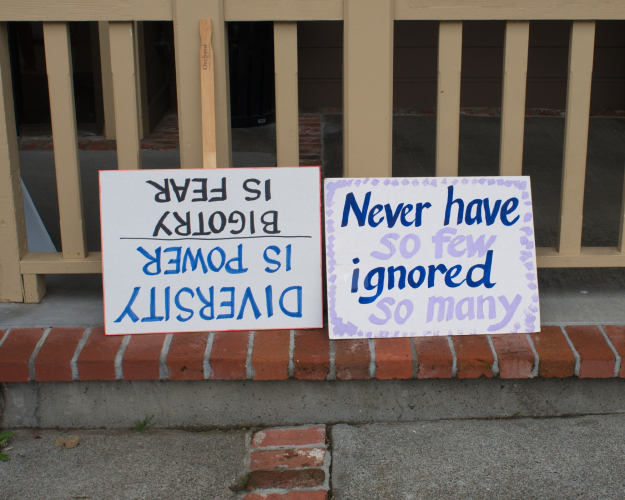 DIVERSITY
IS POWER
BIGOTRY
IS FEAR
Never have
so few
ignored
so many